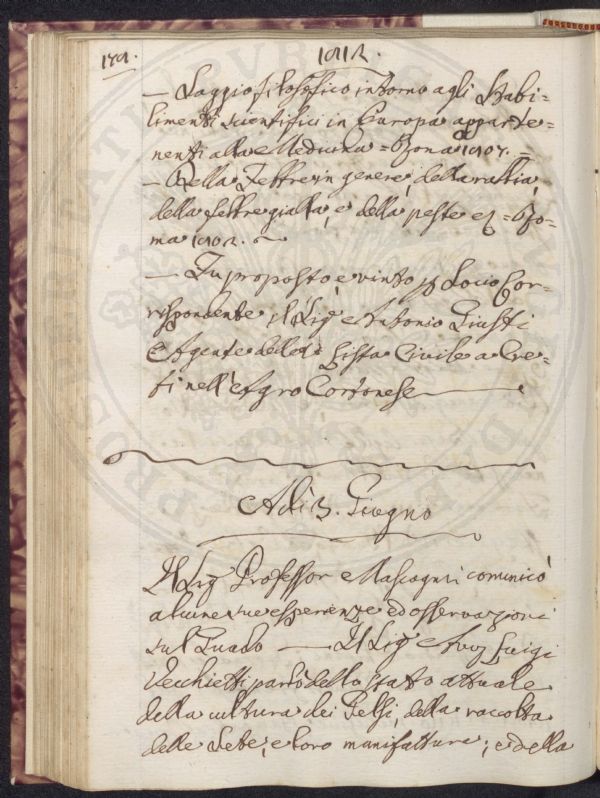 191. 1812.
— Saggio filosofico intorno agli Stabi=
limenti scientifici in Europa apparte=
nenti alla Medicina = Roma 1807. =
— Della Febbre in genere, della rattia,
della febbre gialla, e della peste = Ro=
ma 1802.
— Fu proposto e vinto p Socio Cor=
rispondente il Sig Antonio Giusti
Agente della Lista Civile a Cre=
ti nell'Agro Cortonese
Adì 3. Giugno
Il Sig Professor Mascagni comunicò
alcune sue esperienze ed osservazioni
sul Guado — Il Sig Avv Luigi
Vecchietti parlò dello stato attuale
della cultura dei Gelsi, della raccolta
delle Sete, e loro manifatture; e della